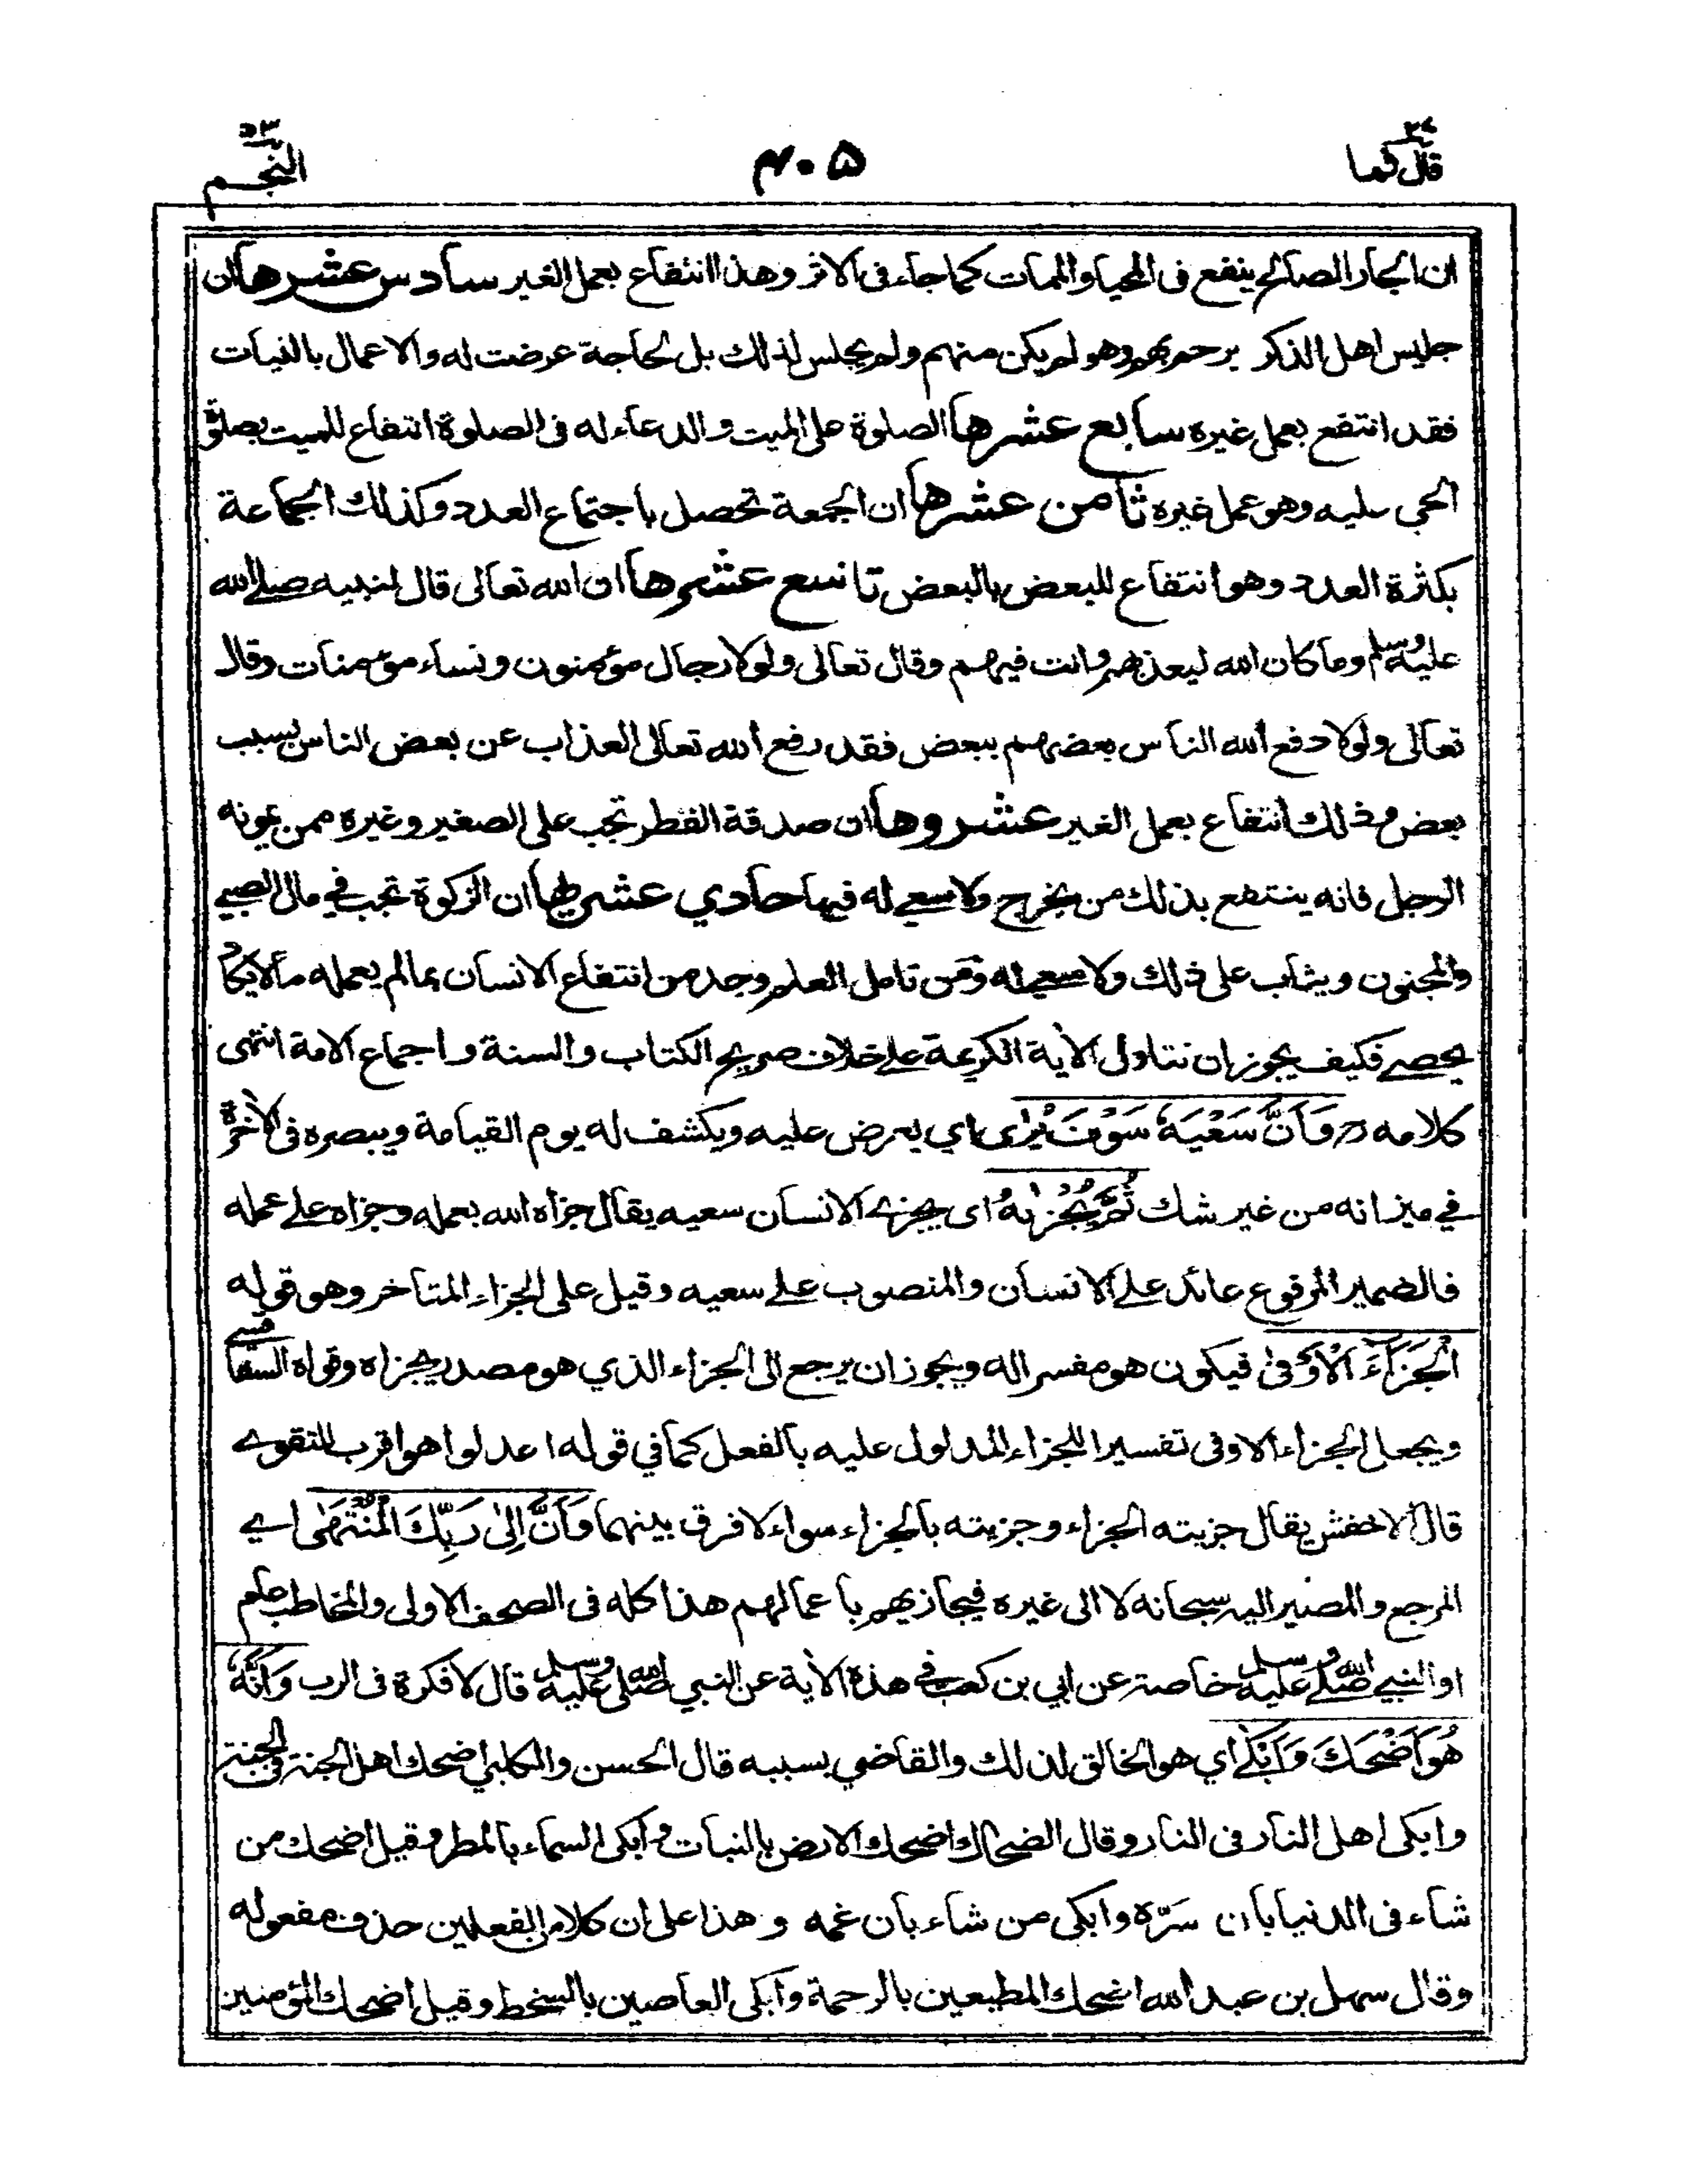 قال فما ٢٧
٤٠٥
النجم ٥٣
ان الجار الصالح ينفع فى المحيا والممات كما جاء فى الاثر وهذا انتفاع بعمل الغير سادس عشرها ان
جليس اهل الذكر يرحم بهم وهو لم يكن منهم ولم يجلس لذلك بل لحاجة عرضت له والاعمال بالنيات
فقد انتفع بعمل غيره سابع عشرها الصلوة على الميت والدعاء له فى الصلوة انتفاع للميت بصلوة
الحي عليه وهو عمل غيره ثامن عشرها ان الجمعة تحصل باجتماع العدد وكذلك الجماعة
بكثرة العدد وهو انتفاع للبعض بالبعض تاسع عشرها ان الله تعالى قال لنبيه صلے الله
عليه وسلم وما كان الله ليعذبهم وانت فيهم وقال تعالى ولولا رجال مؤمنون ونساء مؤمنات وقال
تعالى ولولا دفع الله الناس بعضهم ببعض فقد رفع الله تعالى العذاب عن بعض الناس بسبب
بعض وذلك انتفاع بعمل الغير عشروها ان صدقة الفطر تجب على الصغير وغيره ممن يمونه
الرجل فانه ينتفع بذلك من يخرج ولا سعے له فيها حادي عشريها ان الزكوة تجب في مال الصبے
والمجنون ويثاب على ذلك ولا سعے له ومن تامل العلم وجد من انتفاع الانسان بمالم يعمله مالا يكاد
يحصے فكيف يجوز ان نتاول الاية الكريمة علے خلاف صريح الكتاب والسنة واجماع الامة انتهى
كلامه رح وَأَنَّ سَعْيَهُ سَوْفَ يُرٰى اي يعرض عليه ويكشف له يوم القيامة ويبصره فى الاٰخرة
في ميزانه من غير شك ثُمَّ يُجْزٰىهُ اى يجزے الانسان سعيه يقال جزاه الله بعمله وجزاه علے عمله
فالضمير المرفوع عائد علے الانسان والمنصوب علے سعيه وقيل على الجزاء المتاخر وهو قوله
الْجَزَآءَ الْأَوْفٰى فيكون هو مفسر اله ويجوز ان يرجع الى الجزاء الذي هو مصدر يجزاه وقواه السفاقسے
ويجعل الجزاء الاوفى تفسيرا للجزاء المدلول عليه بالفعل كما في قوله اعدلوا هو اقرب للتقوے
قال الاخفش يقال جزيته الجزاء وجزيته بالجزاء سواء لا فرق بينهما وَأَنَّ إِلٰى رَبِّكَ الْمُنْتَهٰى اے
المرجع والمصير اليه سبحانه لا الى غيره فيجازيهم باعمالهم هذا كله فى الصحف الاولى والمخاطب عام
او النبي صلے الله عليه وسلم خاصة عن ابي بن كعب في هذه الاٰية عن النبي صلى الله عليه وسلم قال لا فكرة فى الرب وَأَنَّهُ
هُوَ أَضْحَكَ وَأَبْكٰى اي هو الخالق لذلك والقاضي بسببه قال الحسن والكلبي اضحك اهل الجنة فى الجنة
وابكى اهل النار فى النار وقال الضحاك اضحك الارض بالنبات وابكى السماء بالمطر وقيل اضحك من
شاء فى الدنيا بان سرّه وابكى من شاء بان غمه وهذا على ان كلا من الفعلين حذف مفعوله
وقال سهل بن عبد الله اضحك المطيعين بالرحمة وابكى العاصين بالسخط وقيل اضحك المؤمنين